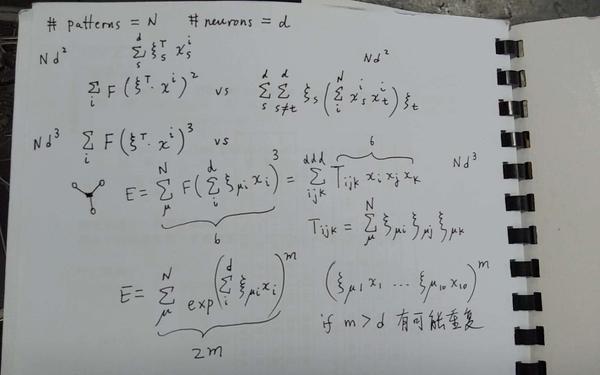 # patterns = N # neurons = d
Nd² Σ_s^d ξ_s^T x_s^i Nd²
Σ_i F(ξ^T · x^i)² vs Σ_s^d Σ_{s≠t}^d ξ_s (Σ_i^N x_s^i x_t^i) ξ_t
Nd³ Σ_i F(ξ^T · x^i)³ vs
E = Σ_μ^N F(Σ_i^d ξ_{μi} x_i)³ = Σ_{ijk}^{ddd} T_{ijk} x_i x_j x_k Nd³
6 6
T_{ijk} = Σ_μ^N ξ_{μi} ξ_{μj} ξ_{μk}
E = Σ_μ^N exp(Σ_i^d ξ_{μi} x_i)^m (ξ_{μ1} x_1 ... ξ_{μ10} x_{10})^m
2m if m > d 有可能重复